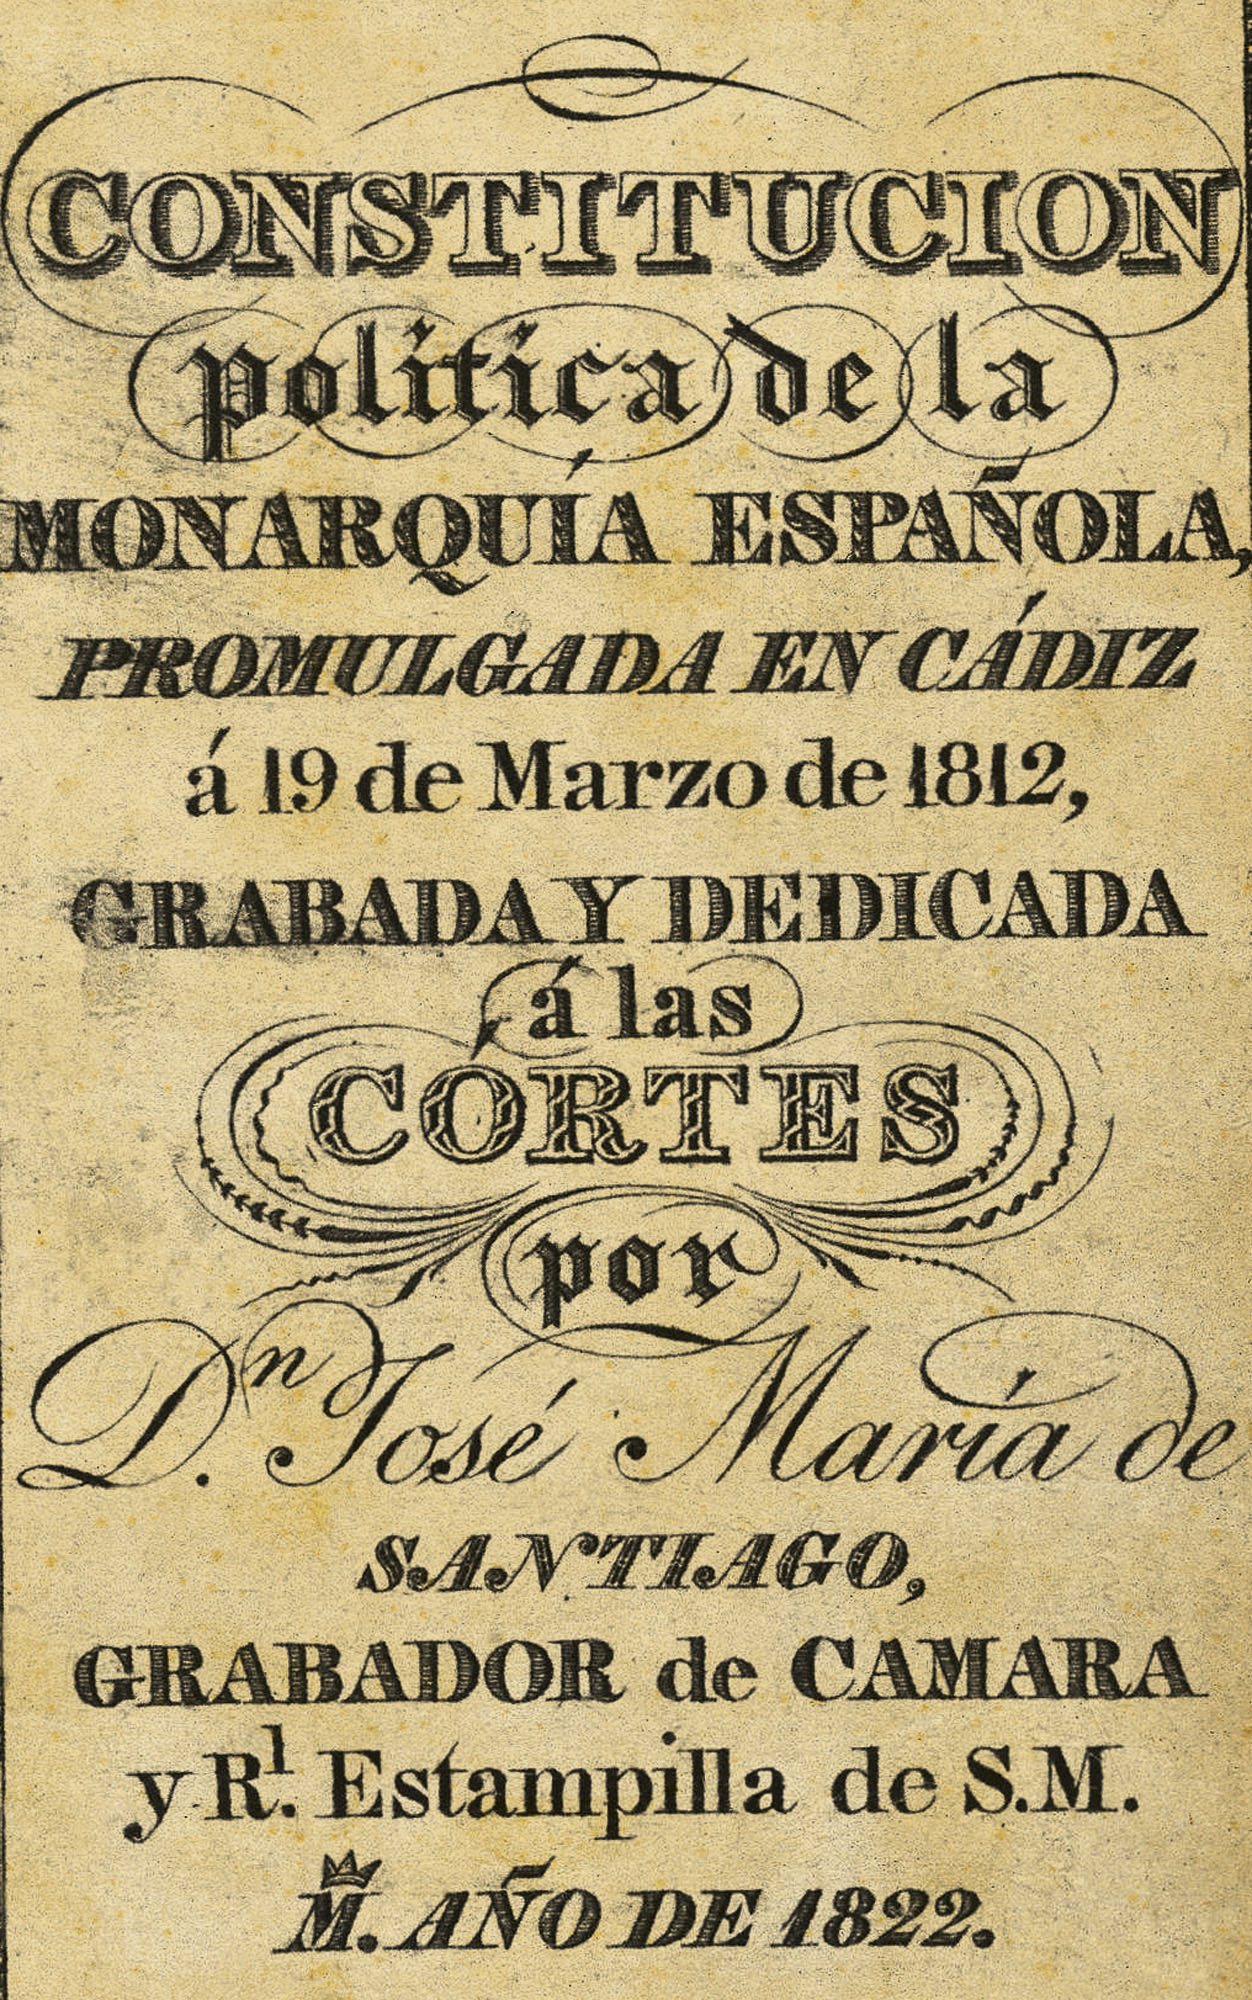 CONSTITUCION
política de la
MONARQUÍA ESPAÑOLA,
PROMULGADA EN CÁDIZ
á 19 de Marzo de 1812,
GRABADA Y DEDICADA
á las
CÓRTES
por
Dn. José María de
SANTIAGO,
GRABADOR de CAMARA
y Rl. Estampilla de S.M.
M. AÑO DE 1822.